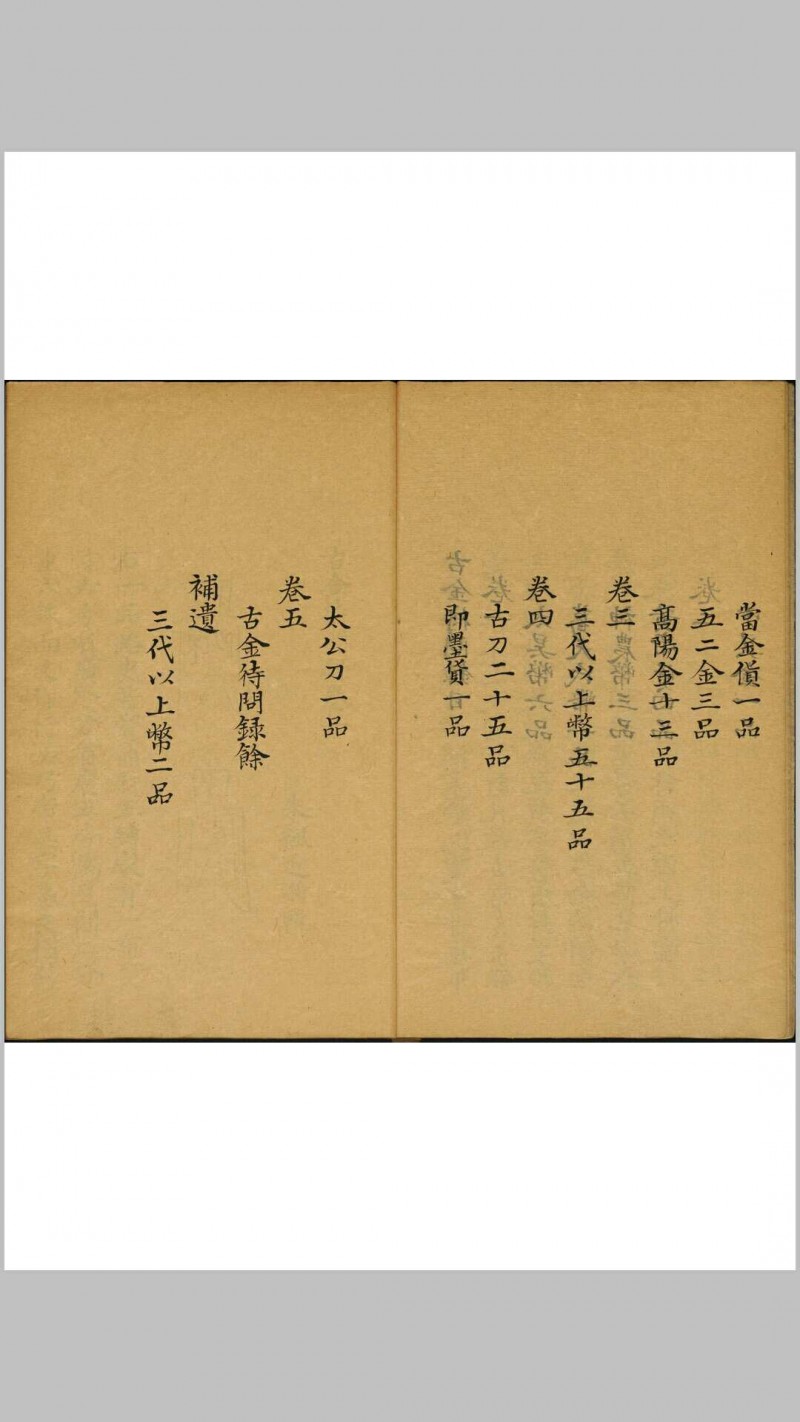 當金貨一品
五二金三品
高陽金十三品
卷三
三代以上幣五十五品
卷四
古刀二十五品
即墨貨一品
太公刀一品
卷五
古金待問録餘
補遺
三代以上幣二品